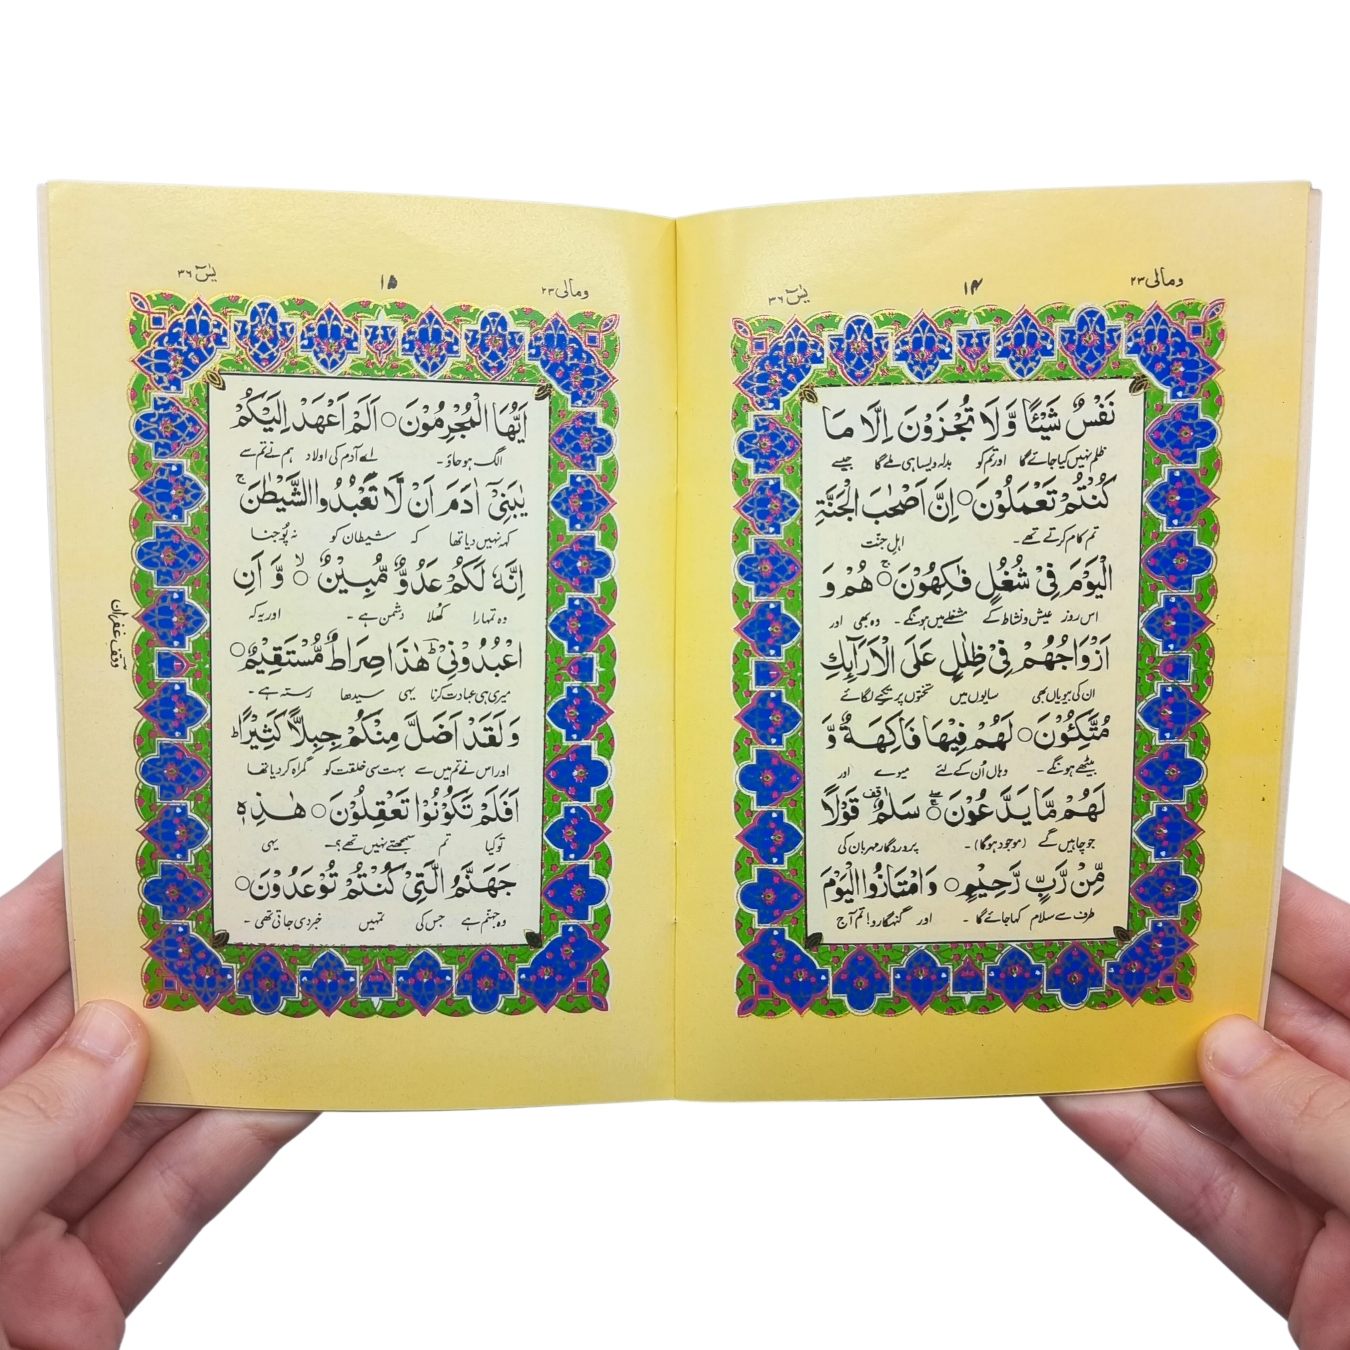 ومالی ۲۳
۱۴
یٰسٓ ۳۶
نَفْسٌ شَيْئًا وَّلَا تُجْزَوْنَ اِلَّا مَا
ظلم نہیں کیا جائے گا اور تم کو بدلہ ویسا ہی ملے گا جیسے
كُنْتُمْ تَعْمَلُوْنَ○ اِنَّ اَصْحٰبَ الْجَنَّةِ
تم کام کرتے تھے۔ اہلِ جنّت
الْيَوْمَ فِيْ شُغُلٍ فٰكِهُوْنَ○ۚ هُمْ وَ
اس روز عیش و نشاط کے مشغلے میں ہونگے۔ وہ بھی اور
اَزْوَاجُهُمْ فِيْ ظِلٰلٍ عَلَى الْاَرَآىِٕكِ
ان کی بیویاں بھی سایوں میں تختوں پر تکیے لگائے
مُتَّكِـُٔوْنَ○ لَهُمْ فِيْهَا فَاكِهَةٌ وَّ
بیٹھے ہونگے۔ وہاں اُن کے لئے میوے اور
لَهُمْ مَّا يَدَّعُوْنَ○ۚ سَلٰمٌ ۣ قَوْلًا
جو چاہیں گے (موجود ہوگا)۔ پروردگار مہربان کی
مِّنْ رَّبٍّ رَّحِيْمٍ○ وَامْتَازُوا الْيَوْمَ
طرف سے سلام کہا جائے گا۔ اور گنہگارو! تم آج
ومالی ۲۳
۱۵
یٰسٓ ۳۶
اَيُّهَا الْمُجْرِمُوْنَ○ اَلَمْ اَعْهَدْ اِلَيْكُمْ
الگ ہو جاؤ۔ اے آدم کی اولاد ہم نے تم سے
يٰبَنِيْٓ اٰدَمَ اَنْ لَّا تَعْبُدُوا الشَّيْطٰنَ ۚ
کہہ نہیں دیا تھا کہ شیطان کو نہ پُوجنا
اِنَّهٗ لَكُمْ عَدُوٌّ مُّبِيْنٌ○ۙ وَّ اَنِ
وہ تمہارا کھُلا دشمن ہے۔ اور یہ کہ
اعْبُدُوْنِيْ ؔؕ هٰذَا صِرَاطٌ مُّسْتَقِيْمٌ○
میری ہی عبادت کرنا یہی سیدھا رستہ ہے۔
وَلَقَدْ اَضَلَّ مِنْكُمْ جِبِلًّا كَثِيْرًا ؕ
اور اس نے تم میں سے بہت سی خلقت کو گمراہ کر دیا تھا
اَفَلَمْ تَكُوْنُوْا تَعْقِلُوْنَ○ هٰذِهٖ
تو کیا تم سمجھتے نہیں تھے؟۔ یہی
جَهَنَّمُ الَّتِيْ كُنْتُمْ تُوْعَدُوْنَ○
وہ جہنم ہے جس کی تمہیں خبر دی جاتی تھی۔
وقف غفران